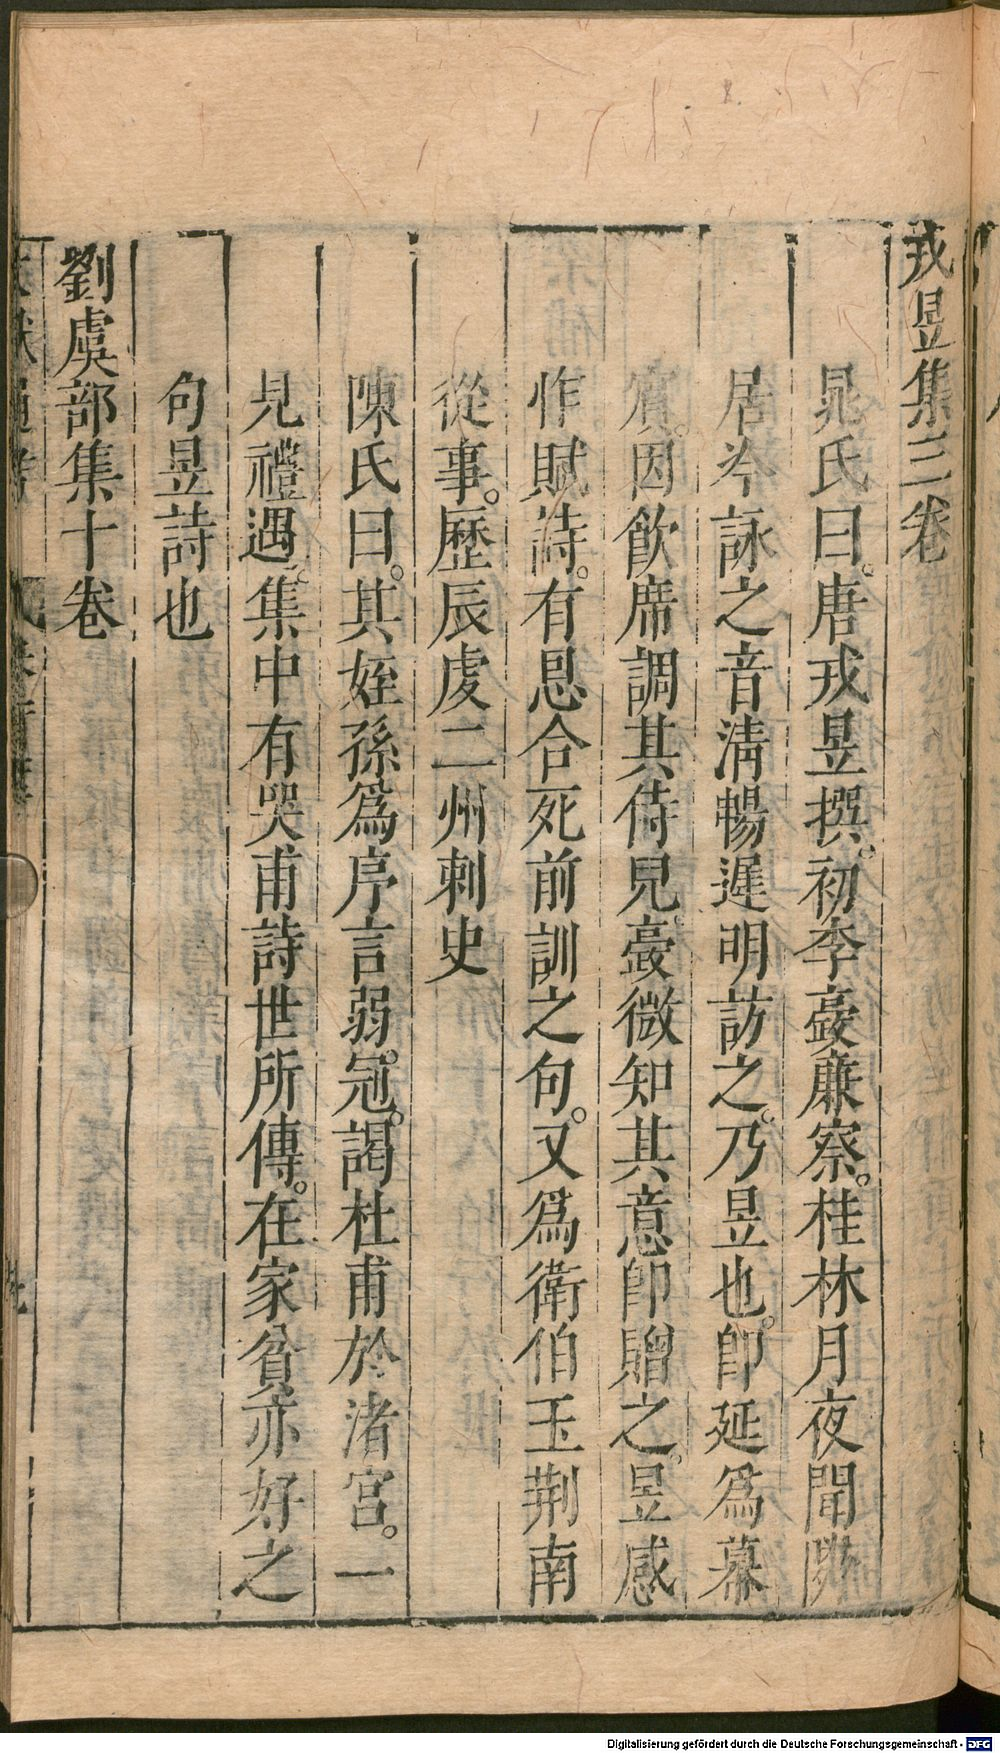 戎昱集三卷
晁氏曰。唐戎昱撰。初李䕫廉察。桂林月夜聞隣
居吟詠之音淸暢遲明訪之。乃昱也。卽延爲幕
賔。因飲席調其侍兒䕫微知其意卽贈之。昱感
怍賦詩。有恩合死前訓之句。又爲衛伯玉荆南
從事。歷辰虔二州刺史
陳氏曰。其姪孫爲序言弱冠。謁杜甫於渚宮。一
見禮遇。集中有哭甫詩世所傳。在家貧亦好之
句昱詩也
劉虞部集十卷
Digitalisierung gefördert durch die Deutsche Forschungsgemeinschaft - DFG